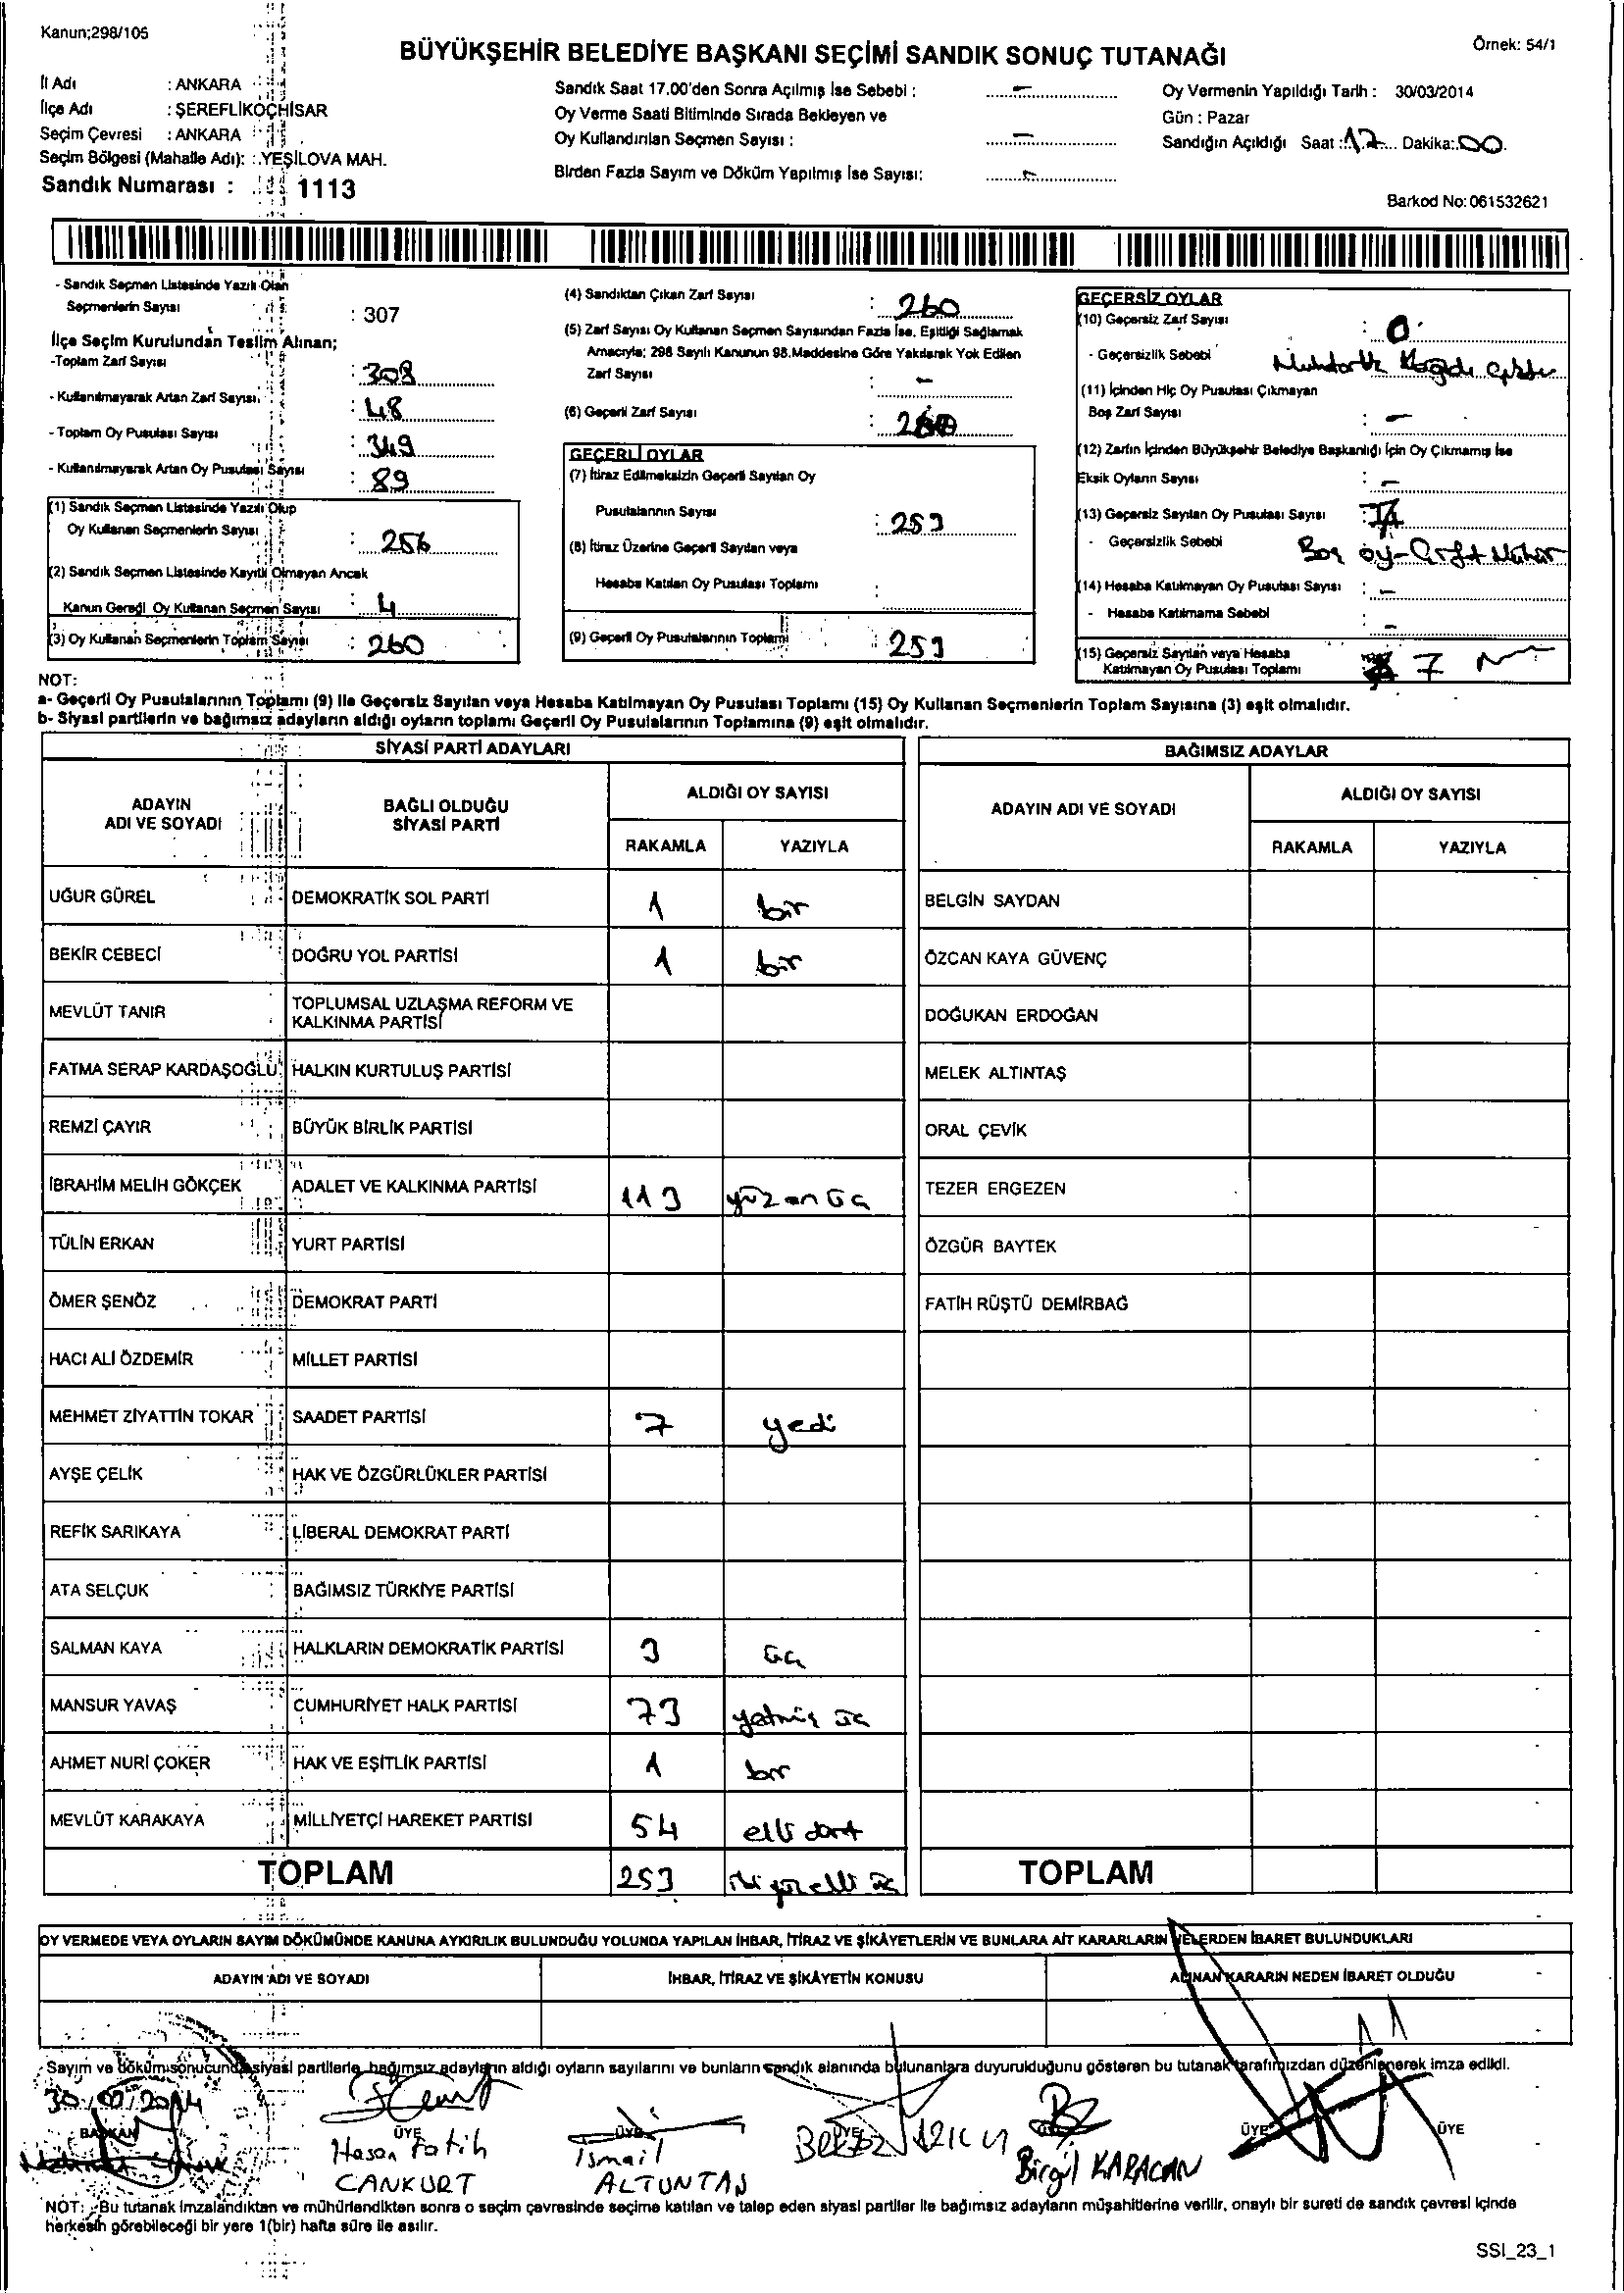 Kanun;298/105
Örnek: 54/1
BÜYÜKŞEHİR BELEDİYE BAŞKANI SEÇİMİ SANDIK SONUÇ TUTANAĞI
İl Adı : ANKARA
İlçe Adı : ŞEREFLİKOÇHİSAR
Seçim Çevresi : ANKARA
Seçim Bölgesi (Mahalle Adı): : YEŞİLOVA MAH.
Sandık Numarası : 1113
Sandık Saat 17.00'den Sonra Açılmış İse Sebebi : –
Oy Verme Saati Bitiminde Sırada Bekleyen ve
Oy Kullandırılan Seçmen Sayısı : –
Birden Fazla Sayım ve Döküm Yapılmış İse Sayısı: –
Oy Vermenin Yapıldığı Tarih : 30/03/2014
Gün : Pazar
Sandığın Açıldığı Saat : 17 Dakika: 00
Barkod No: 061532621
- Sandık Seçmen Listesinde Yazılı Olan
Seçmenlerin Sayısı : 307
İlçe Seçim Kurulundan Teslim Alınan;
-Toplam Zarf Sayısı : 308
- Kullanılmayarak Artan Zarf Sayısı : 48
- Toplam Oy Pusulası Sayısı : 349
- Kullanılmayarak Artan Oy Pusulası Sayısı : 89
(1) Sandık Seçmen Listesinde Yazılı Olup
Oy Kullanan Seçmenlerin Sayısı : 256
(2) Sandık Seçmen Listesinde Kayıtlı Olmayan Ancak
Kanun Gereği Oy Kullanan Seçmen Sayısı : 4
(3) Oy Kullanan Seçmenlerin Toplam Sayısı : 260
(4) Sandıktan Çıkan Zarf Sayısı : 260
(5) Zarf Sayısı Oy Kullanan Seçmen Sayısından Fazla İse, Eşitliği Sağlamak
Amacıyla; 298 Sayılı Kanunun 98.Maddesine Göre Yakılarak Yok Edilen
Zarf Sayısı : –
(6) Geçerli Zarf Sayısı : 260
GEÇERLİ OYLAR
(7) İtiraz Edilmeksizin Geçerli Sayılan Oy
Pusulalarının Sayısı : 253
(8) İtiraz Üzerine Geçerli Sayılan veya
Hesaba Katılan Oy Pusulası Toplamı :
(9) Geçerli Oy Pusulalarının Toplamı : 253
GEÇERSİZ OYLAR
(10) Geçersiz Zarf Sayısı : 0
- Geçersizlik Sebebi
(11) İçinden Hiç Oy Pusulası Çıkmayan
Boş Zarf Sayısı : –
(12) Zarfın İçinden Büyükşehir Belediye Başkanlığı İçin Oy Çıkmamış İse
Eksik Oyların Sayısı : –
(13) Geçersiz Sayılan Oy Pusulası Sayısı : 7
- Geçersizlik Sebebi Boş oy - Çift Mühür
(14) Hesaba Katılmayan Oy Pusulası Sayısı : –
- Hesaba Katılmama Sebebi : –
(15) Geçersiz Sayılan veya Hesaba
Katılmayan Oy Pusulası Toplamı : 7
NOT:
a- Geçerli Oy Pusulalarının Toplamı (9) İle Geçersiz Sayılan veya Hesaba Katılmayan Oy Pusulası Toplamı (15) Oy Kullanan Seçmenlerin Toplam Sayısına (3) eşit olmalıdır.
b- Siyasi partilerin ve bağımsız adayların aldığı oyların toplamı Geçerli Oy Pusulalarının Toplamına (9) eşit olmalıdır.
SİYASİ PARTİ ADAYLARI
ADAYIN ADI VE SOYADI
BAĞLI OLDUĞU SİYASİ PARTİ
ALDIĞI OY SAYISI
RAKAMLA YAZIYLA
UĞUR GÜREL DEMOKRATİK SOL PARTİ 1 bir
BEKİR CEBECİ DOĞRU YOL PARTİSİ 1 bir
MEVLÜT TANIR TOPLUMSAL UZLAŞMA REFORM VE KALKINMA PARTİSİ
FATMA SERAP KARDAŞOĞLU HALKIN KURTULUŞ PARTİSİ
REMZİ ÇAYIR BÜYÜK BİRLİK PARTİSİ
İBRAHİM MELİH GÖKÇEK ADALET VE KALKINMA PARTİSİ 113 yüz on üç
TÜLİN ERKAN YURT PARTİSİ
ÖMER ŞENÖZ DEMOKRAT PARTİ
HACI ALİ ÖZDEMİR MİLLET PARTİSİ
MEHMET ZİYATTİN TOKAR SAADET PARTİSİ 7 yedi
AYŞE ÇELİK HAK VE ÖZGÜRLÜKLER PARTİSİ
REFİK SARIKAYA LİBERAL DEMOKRAT PARTİ
ATA SELÇUK BAĞIMSIZ TÜRKİYE PARTİSİ
SALMAN KAYA HALKLARIN DEMOKRATİK PARTİSİ 3 üç
MANSUR YAVAŞ CUMHURİYET HALK PARTİSİ 73 yetmiş üç
AHMET NURİ ÇOKER HAK VE EŞİTLİK PARTİSİ 1 bir
MEVLÜT KARAKAYA MİLLİYETÇİ HAREKET PARTİSİ 54 elli dört
TOPLAM 253 iki yüz elli üç
BAĞIMSIZ ADAYLAR
ADAYIN ADI VE SOYADI
ALDIĞI OY SAYISI
RAKAMLA YAZIYLA
BELGİN SAYDAN
ÖZCAN KAYA GÜVENÇ
DOĞUKAN ERDOĞAN
MELEK ALTINTAŞ
ORAL ÇEVİK
TEZER ERGEZEN
ÖZGÜR BAYTEK
FATİH RÜŞTÜ DEMİRBAĞ
TOPLAM
OY VERMEDE VEYA OYLARIN SAYIM DÖKÜMÜNDE KANUNA AYKIRILIK BULUNDUĞU YOLUNDA YAPILAN İHBAR, İTİRAZ VE ŞİKÂYETLERİN VE BUNLARA AİT KARARLARIN NELERDEN İBARET BULUNDUKLARI
ADAYIN ADI VE SOYADI İHBAR, İTİRAZ VE ŞİKÂYETİN KONUSU ALINAN KARARIN NEDEN İBARET OLDUĞU
Sayım ve döküm sonucunda siyasi partilerle bağımsız adayların aldığı oyların sayılarını ve bunların sandık alanında bulunanlara duyurulduğunu gösteren bu tutanak tarafımızdan düzenlenerek imza edildi.
BAŞKAN ÜYE ÜYE ÜYE ÜYE ÜYE ÜYE
Hasan Fatih CANKURT
İsmail ALTUNTAŞ
Birgül KARACAN
NOT: Bu tutanak imzalandıktan ve mühürlendikten sonra o seçim çevresinde seçime katılan ve talep eden siyasi partiler ile bağımsız adayların müşahitlerine verilir, onaylı bir sureti de sandık çevresi içinde
herkesin görebileceği bir yere 1(bir) hafta süre ile asılır.
SSI_23_1